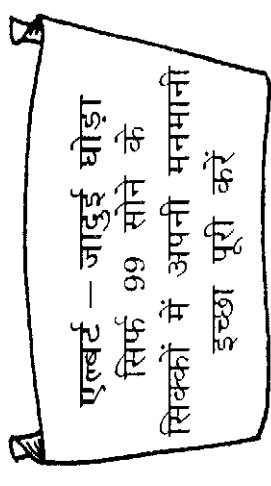 एल्बर्ट – जादुई घोड़ा
सिर्फ 99 सोने के
सिक्कों में अपनी मनमानी
इच्छा पूरी करें